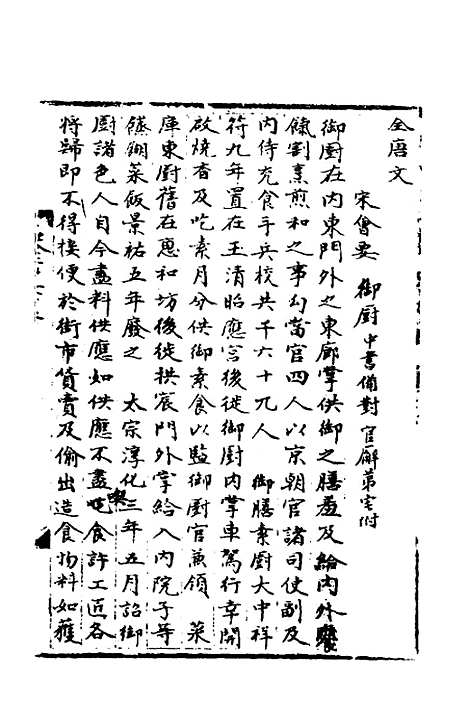 全唐文
宋會要 御厨 中書備對官廨第宅附
御厨在内東門外之東廊掌供御之膳羞及給内外饔
餼割烹煎和之事勾當官四人以京朝官諸司使副及
内侍充食手兵校共千六十九人 御膳素厨大中祥
符九年置在玉清昭應宮後徙御厨内掌車駕行幸開
啟燒香及吃素月分供御素食以監御厨官兼領 菜
庫東厨舊在惠和坊後徙拱宸門外掌給入内院子等
饊餬菜飯景祐五年廢之 太宗淳化三年五月詔御
厨諸色人自今盡料供應如供應不盡喫食許工匠各
將歸即不得接便於街市貨賣及偷出造食物料如獲